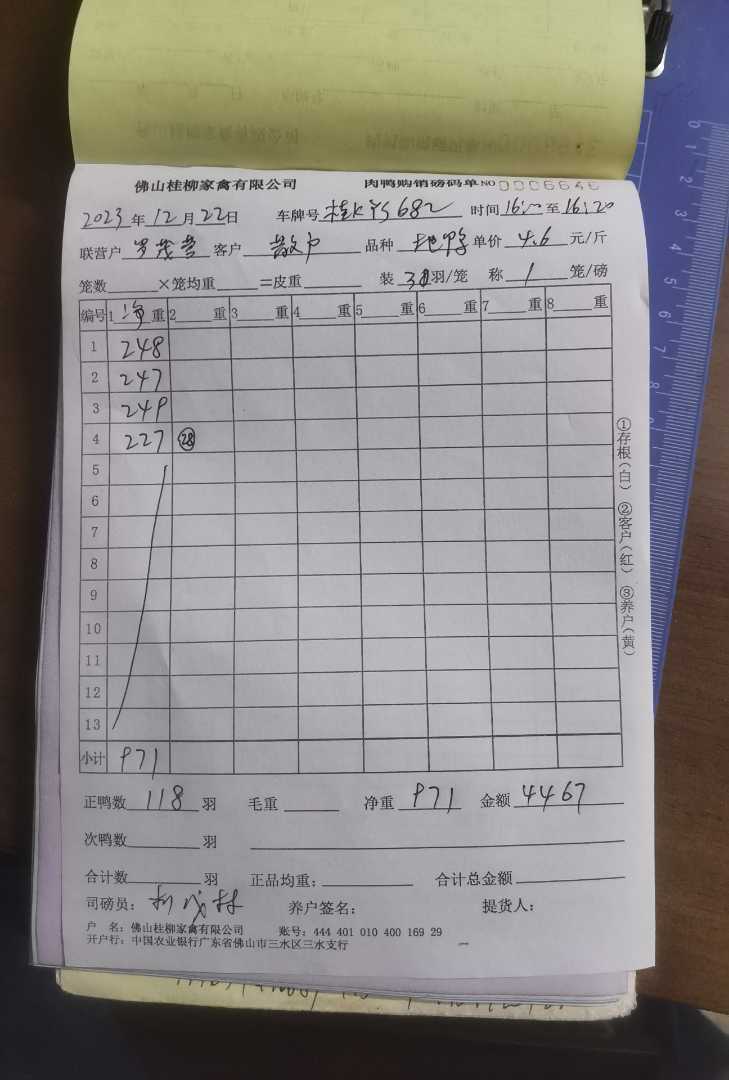 佛山桂柳家禽有限公司 肉鸭购销磅码单 NO 0006646
2023年12月22日 车牌号 桂KYS682 时间16:00至16:20
联营户 罗茂营 客户 散户 品种 土鸭 单价 4.6 元/斤
笼数 ×笼均重 =皮重 装 30 羽/笼 称 1 笼/磅
编号 1 净 重 2 重 3 重 4 重 5 重 6 重 7 重 8 重
1 248
2 247
3 249
4 227 28
5
6
7
8
9
10
11
12
13
小计 971
正鸭数 118 羽 毛重 净重 971 金额 4467
次鸭数 羽
合计数 羽 正品均重: 合计总金额
司磅员: 养户签名: 提货人:
户 名: 佛山桂柳家禽有限公司 账号: 444 401 010 400 169 29
开户行: 中国农业银行广东省佛山市三水区三水支行
①存根(白) ②客户(红) ③养户(黄)